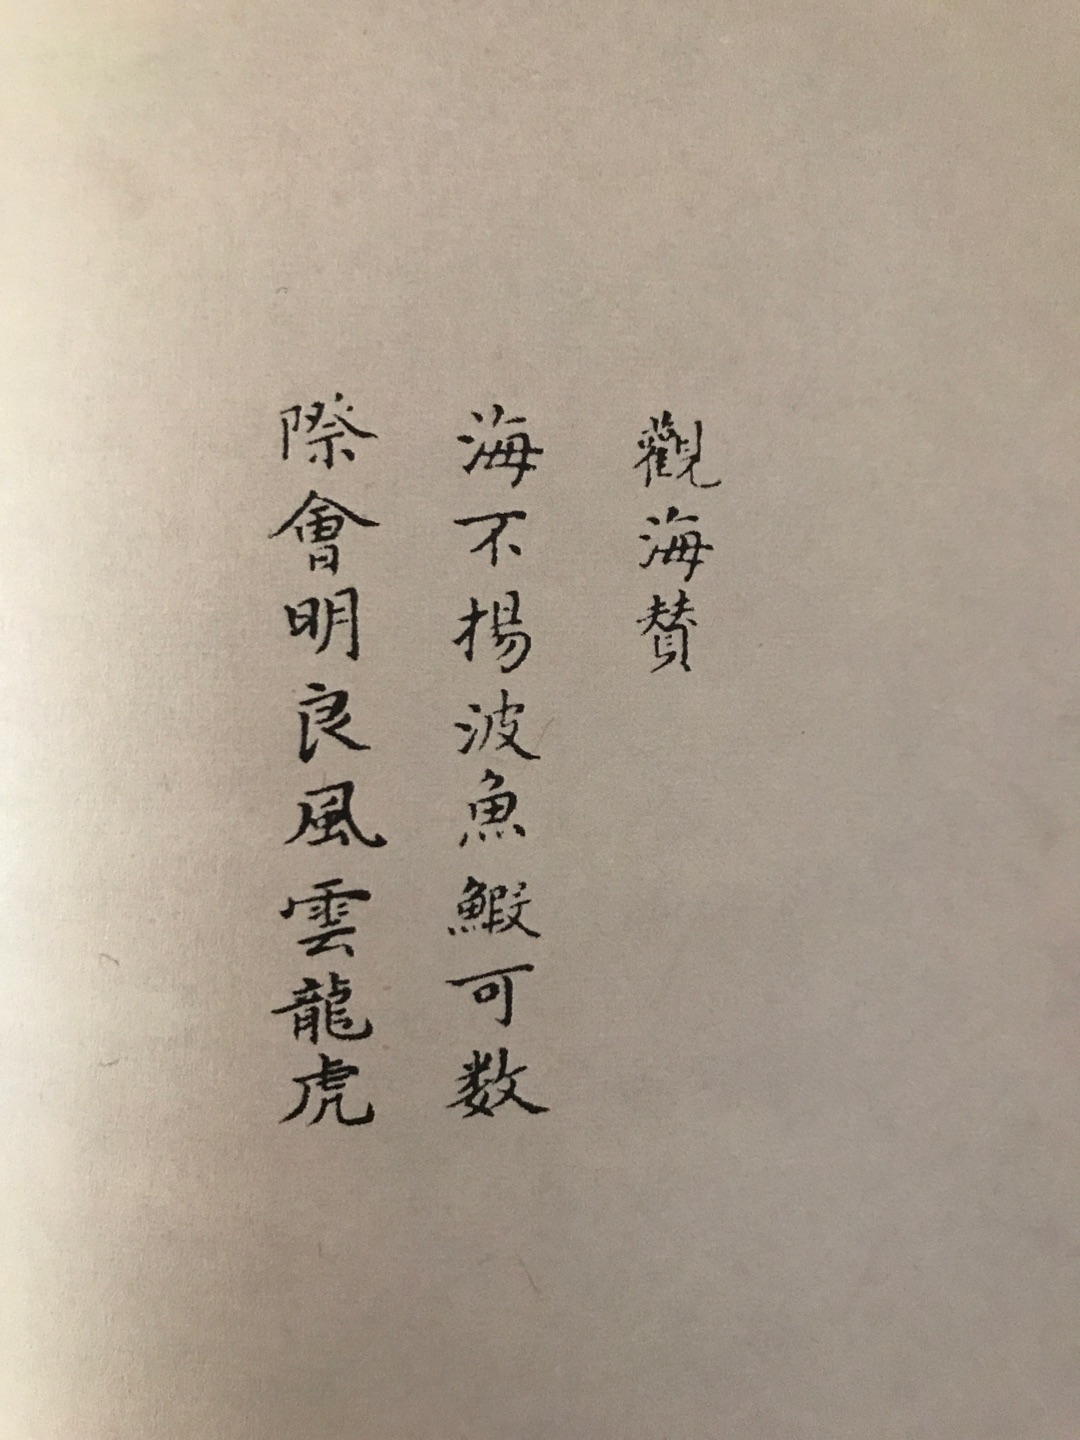 觀海賛
海不揚波魚鰕可数
際會明良風雲龍虎